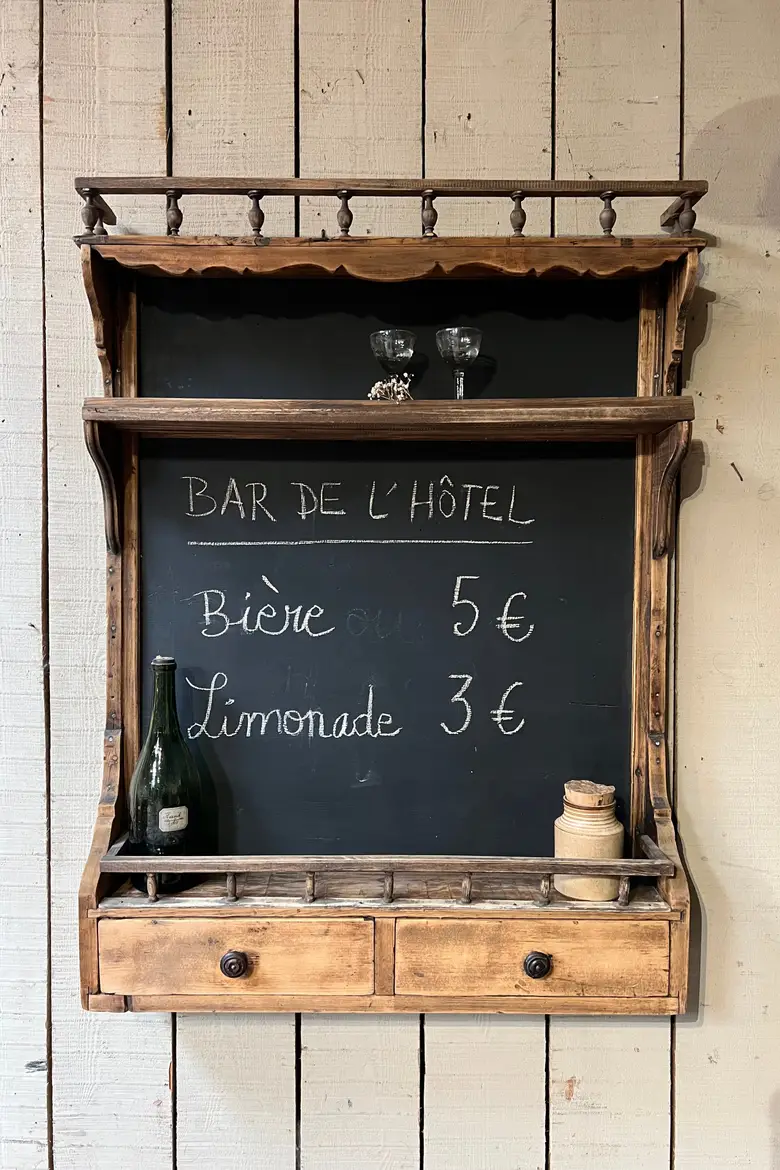 BAR DE L'HÔTEL
Bière 5 €
Limonade 3 €